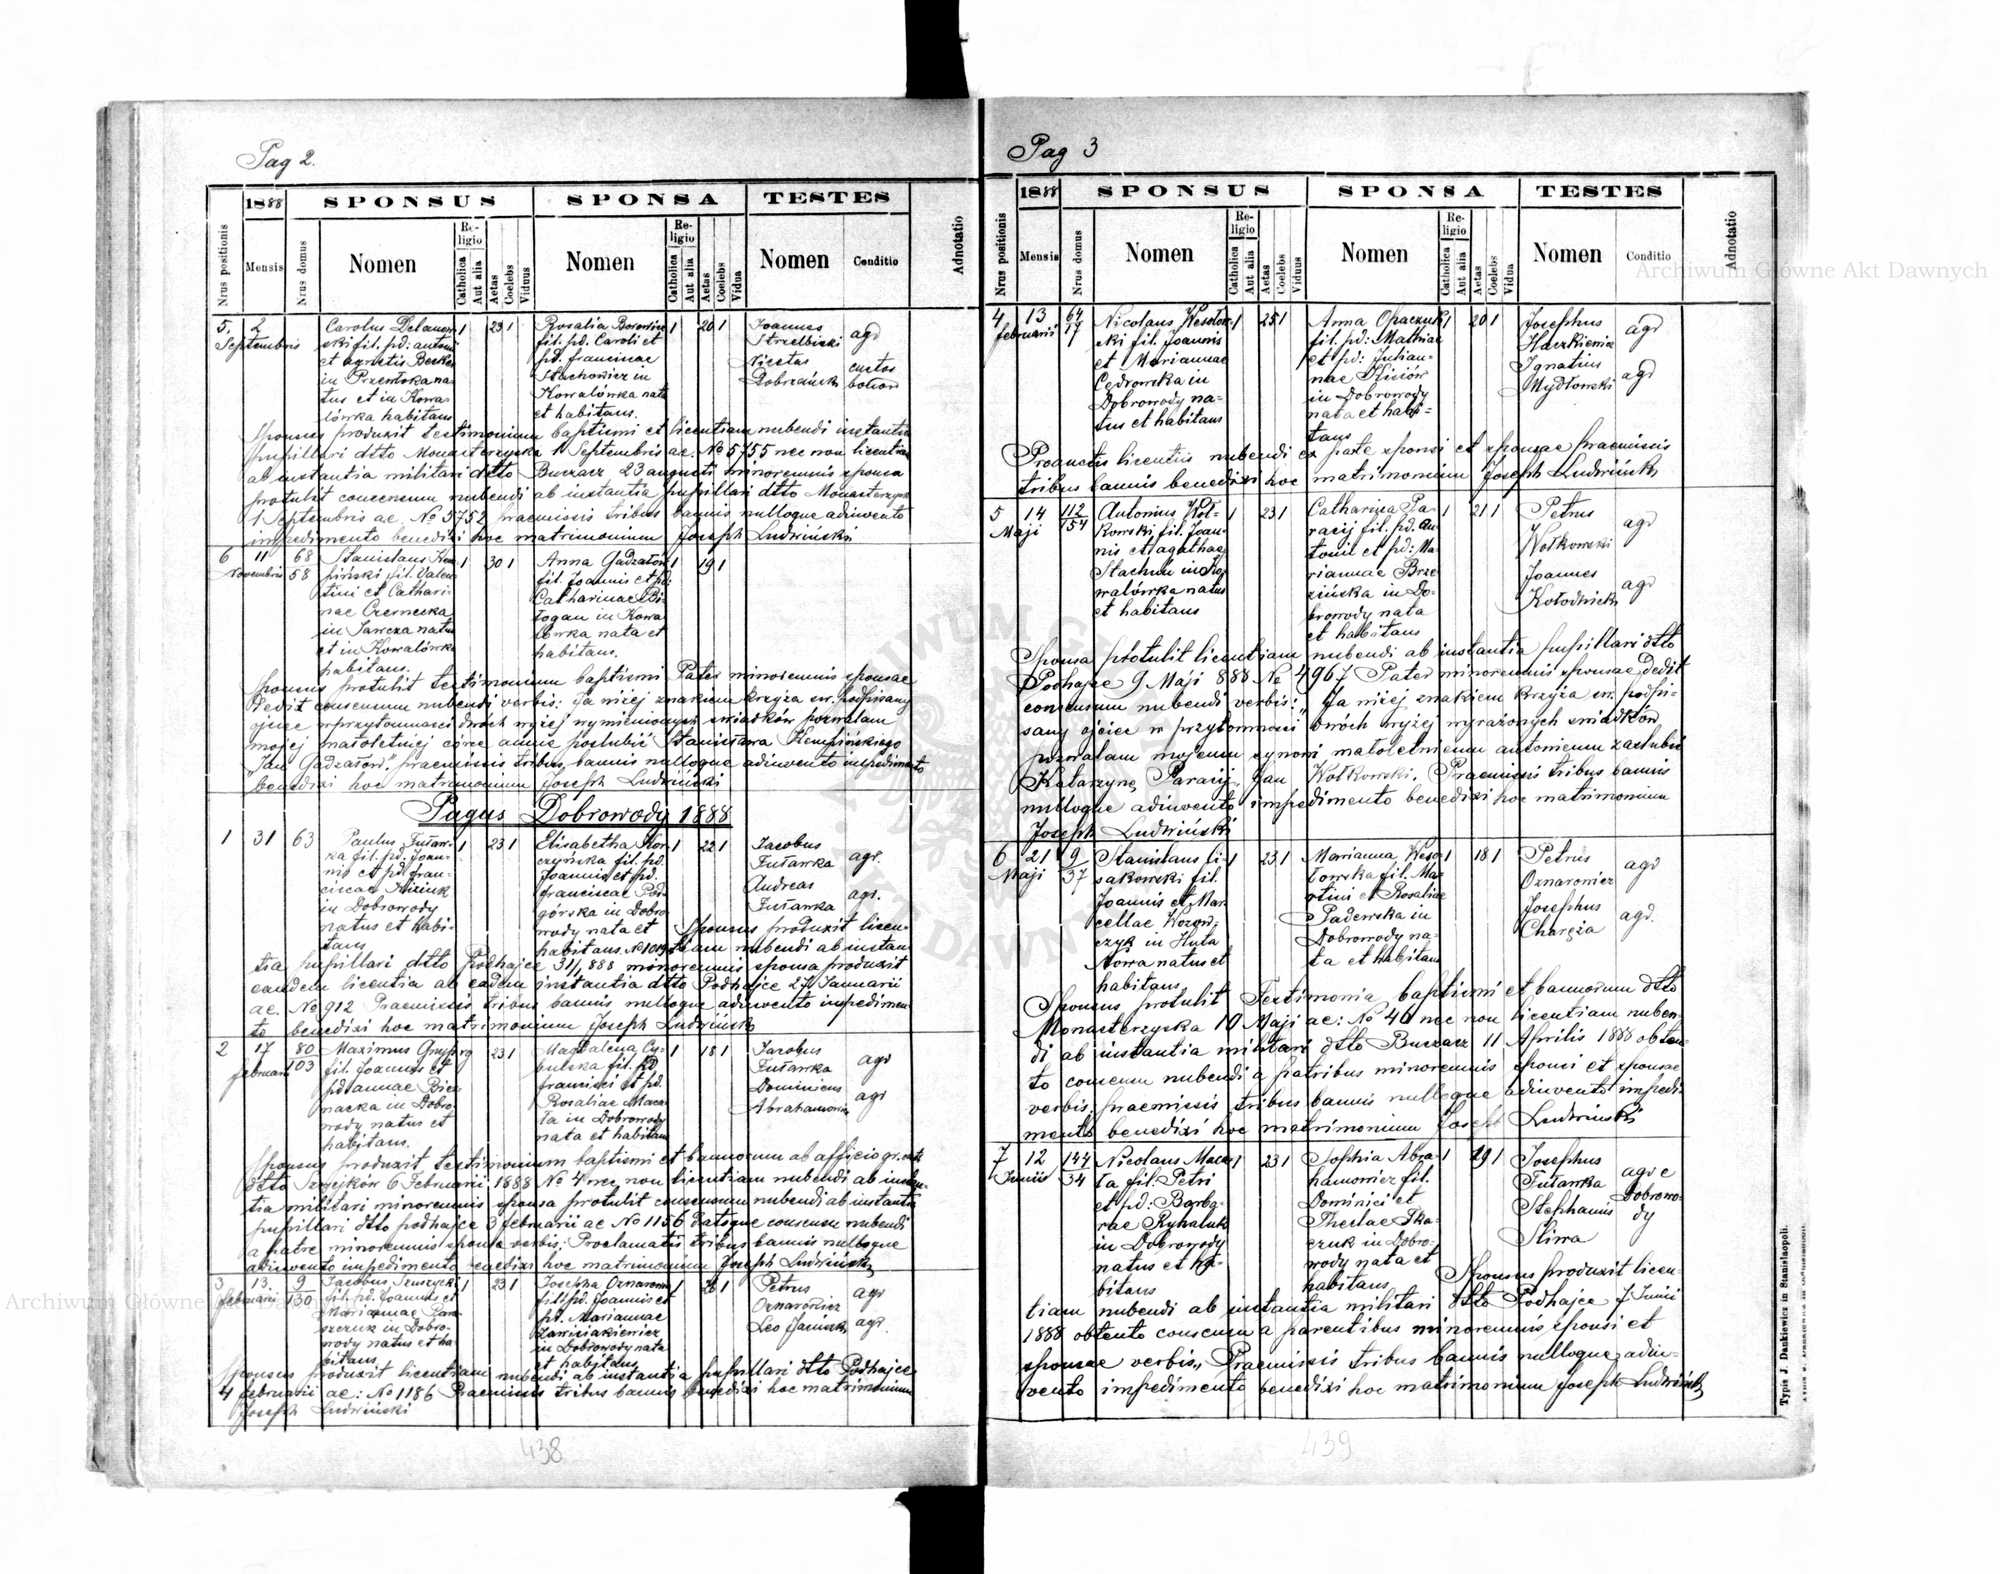 Pag 2.
1888 SPONSUS SPONSA TESTES
Nrus positionis Mensis Nrus domus Nomen Religio Catholica Aut alia Aetas Coelebs Viduus Nomen Religio Catholica Aut alia Aetas Coelebs Vidua Nomen Conditio Adnotatio
5. 2 Septembris
Carolus
ski fil. pd: antoni
et agnetis
in Przewłoka na-
tus et in Kowa-
lówka habitans
1 23 1
Rosalia
fil. pd. Caroli et
pd. franciscae
Stachowicz in
Kowalówka nata
et habitans.
1 20 1
Joannes
Strzelbicki
agr
Nicetas
Dobrzański
custos
Sponsus produxit testimonium baptismi et licentiam nubendi instantia
pupillari dtto Monasterzyska 1 Septembris ac. No 5755 nec non licentiam
ab instantia militari dtto Buczacz 23 augusti minorennis sponsa
protulit concensum nubendi ab instantia pupillari dtto Monasterzysk
1 Septembris ac. No 5752 praemissis tribus bannis nulloque adinvento
impedimento benedixi hoc matrimonium Joseph Ludwiński
6 11 Novembris 68 58
Stanislaus Kem
piński fil. Valen
tini et Cathari-
nae Czernecka
in natus
et in Kowalówka
habitans.
1 30 1
Anna Gadzałów
fil. Joannis et pd:
Catharinae Bi-
łogan in Kowa
lówka nata et
habitans.
1 19 1
Sponsus protulit testimonium baptismi Pater minorennis sponsae
dedit consensum nubendi verbis: Ja niżej znakiem krzyża św. podpisany
ojciec w przytomności dwóch wyżej wymienionych świadków pozwalam
mojej małoletniej córce annie poślubić Stanisława Kempińskiego
"Jan Gadzałów." praemissis tribus bannis nulloque adinvento impedimento
benedixi hoc matrimonium Joseph Ludwiński
Pagus Dobrowody 1888
1 31 63
Paulus Futaw-
ka fil. pd. Joan-
nis et pd fran-
ciscae
in Dobrowody
natus et habi-
tans
1 23 1
Elisabetha Kor
czyńska fil. pd.
Joannis et pd.
franciscae Pod
górska in Dobro
wody nata et
habitans No 1019
1 22 1
Jacobus
Futawka
agr.
Andreas
Futawka
agr.
Sponsus produxit licen-
tiam nubendi ab instan
tia pupillari dtto Podhajce 31/1 888 minorennis sponsa produxit
eandem licentia ab eadem instantia dtto Podhajce 27 Januarii
ac. No 912 Praemissis tribus bannis nulloque adinvento impedimen
to benedixi hoc matrimonium Joseph Ludwiński
2 17 februarii 80 103
Maximus
fil. Joannis et
pd annae Bier
nacka in Dobro
wody natus et
habitans.
23 1
Magdalena Cy-
bulska fil. pd
francisci et pd.
Rosaliae Maca-
ła in Dobrowody
nata et habitans
1 18 1
Jacobus
Futawka
agr
Dominicus
Abrahamowicz
agr
Sponsus produxit testimonium baptismi et bannorum ab officio gr. cath
dtto 6 Februarii 1888 No 4 nec non licentiam nubendi ab instan-
tia militari minorennis sponsa protulit consensum nubendi ab instantia
pupillari dtto podhajce 3 februarii ac No 1156 datoque consensu nubendi
a patre minorennis sponsae verbis: Proclamatis tribus bannis nulloque
adinvento impedimento benedixi hoc matrimonium Joseph Ludwiński
3 13. februarii 9 130
Jacobus
fil. pd. Joannis et
Mariannae
in Dobro-
wody natus et ha
bitans
1 23 1
Josepha Oznarow
fil. pd. Joannis et
pd. Mariannae
in Dobrowody nata
et habitans
1 26 1
Petrus
Oznarowicz
agr
Leo
agr.
Sponsus produxit licentiam nubendi ab instantia pupillari dtto Podhajce
4 februarii ac: No 1186 Praemissis tribus bannis benedixi hoc matrimonium
Joseph Ludwiński
438
Pag 3
1888 SPONSUS SPONSA TESTES
Nrus positionis Mensis Nrus domus Nomen Religio Catholica Aut alia Aetas Coelebs Viduus Nomen Religio Catholica Aut alia Aetas Coelebs Vidua Nomen Conditio Adnotatio
4 13 februarii 64 17
Nicolaus Wesołow
ski fil. Joannis
et Mariannae
Cędrowska in
Dobrowody na-
tus et habitans
1 25 1
Anna Opaczuk
fil. pd: Mathiae
et pd: Julian-
nae
in Dobrowody
nata et habi-
tans
1 20 1
Josephus
Haszkiewicz
agr
Ignatius
Mydłowski
agr
Productis licentiis nubendi ex parte sponsi et sponsae Praemissis
tribus bannis benedixi hoc matrimonium Joseph Ludwiński
5 14 Maji 112 154
Antonius Woł-
kowski fil. Joan-
nis et agathae
Stachów in Ko
walówka natus
et habitans
1 23 1
Catharina Pa-
racij fil. pd. an
tonii et pd: Ma-
riannae Brze-
zińska in Do-
browody nata
et habitans
1 21 1
Petrus
Wołkowski
agr
Joannes
Kołodnicki
agr
Sponsa protulit licentiam nubendi ab instantia pupillari dtto
Podhajce 9 Maji 888 No 4967 Pater minorennis sponsae dedit
consensum nubendi verbis: "Ja niżej znakiem krzyża św. podpi-
sany ojciec w przytomności dwóch wyżej wyrażonych świadków
pozwalam mojemu synowi małoletniemu antoniemu zaślubić
Katarzynę Paracij. Jan Wołkowski. Praemissis tribus bannis
nulloque adinvento impedimento benedixi hoc matrimonium
Joseph Ludwiński
6 21 Maji 9 37
Stanislaus Li-
sakowski fil.
Joannis et Mar
cellae
czyk in Huta
Nowa natus et
habitans
1 23 1
Marianna Weso-
łowska fil. Ma-
rtini et Rosaliae
Padewska in
Dobrowody na-
ta et habitans
1 18 1
Petrus
Oznarowicz
agr
Josephus
Charęza
agr.
Sponsus protulit Testimonia baptismi et bannorum dtto
Monasterzyska 10 Maji ac: No 40 nec non licentiam nuben-
di ab instantia militari dtto Buczacz 11 Aprilis 1888 obten-
to consensu nubendi a patribus minorennis sponsi et sponsae
verbis. praemissis tribus bannis nulloque adinvento impedi-
mento benedixi hoc matrimonium Joseph Ludwiński
7 12 Junii 144 34
Nicolaus Maca
ła fil. Petri
et pd: Barba-
rae Rychaluk
in Dobrowody
natus et ha-
bitans
1 23 1
Sophia Abra-
hamowicz fil.
Dominici et
Theclae Tka-
czuk in Dobro-
wody nata et
habitans
1 19 1
Josephus
Futawka
Stephanus
Sliwa
agr e
Dobrowo-
dy
Sponsus produxit licen-
tiam nubendi ab instantia militari dtto Podhajce 7 Junii
1888 obtento consensu a parentibus minorennis sponsi et
sponsae verbis. Praemissis tribus bannis nulloque adin-
vento impedimento benedixi hoc matrimonium Joseph Ludwiński
Typis J. Dankiewicz in Stanislaopoli.
439
Archiwum Główne Akt Dawnych
Archiwum Główne Akt Dawnych